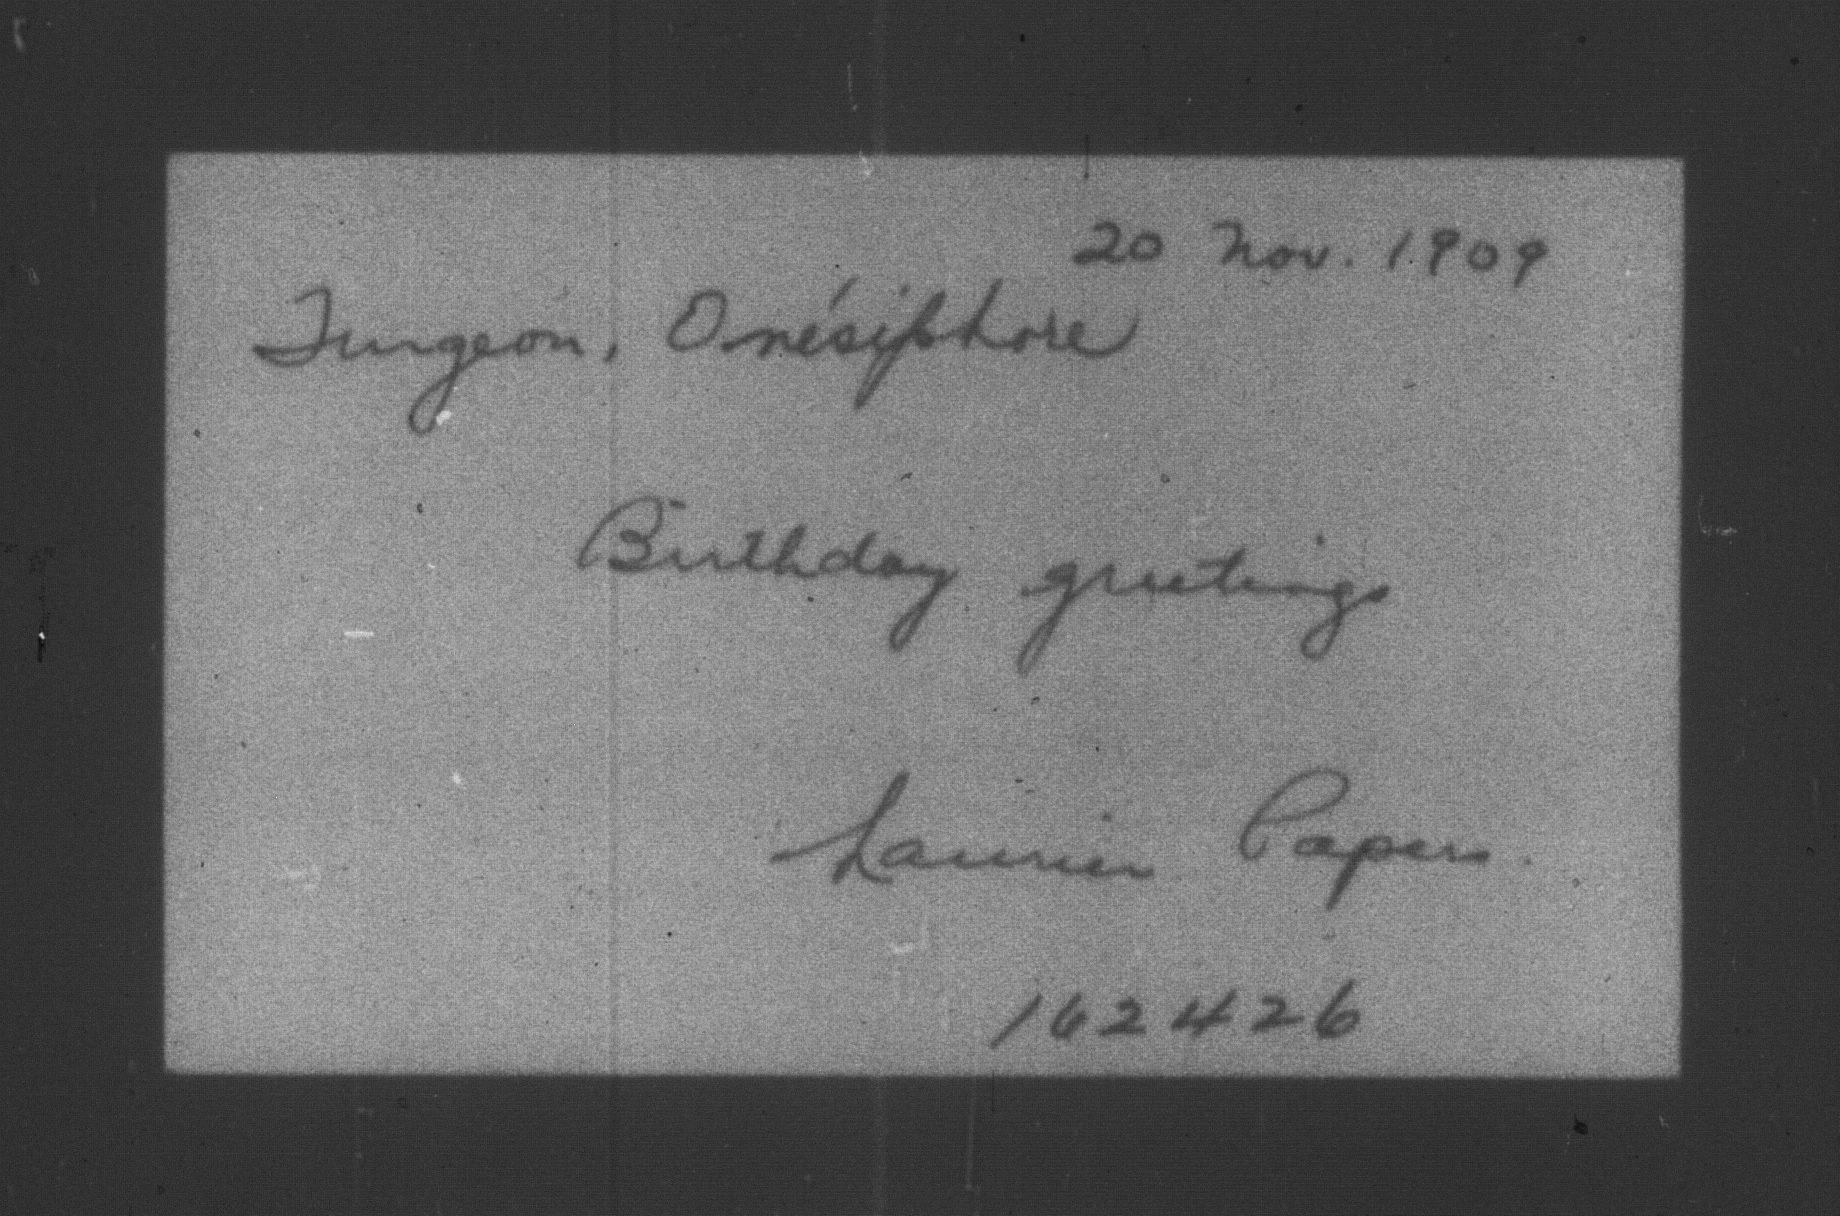 20 Nov. 1909
Turgeon, Onésiphore
Birthday greetings
Laurier Papers.
162426